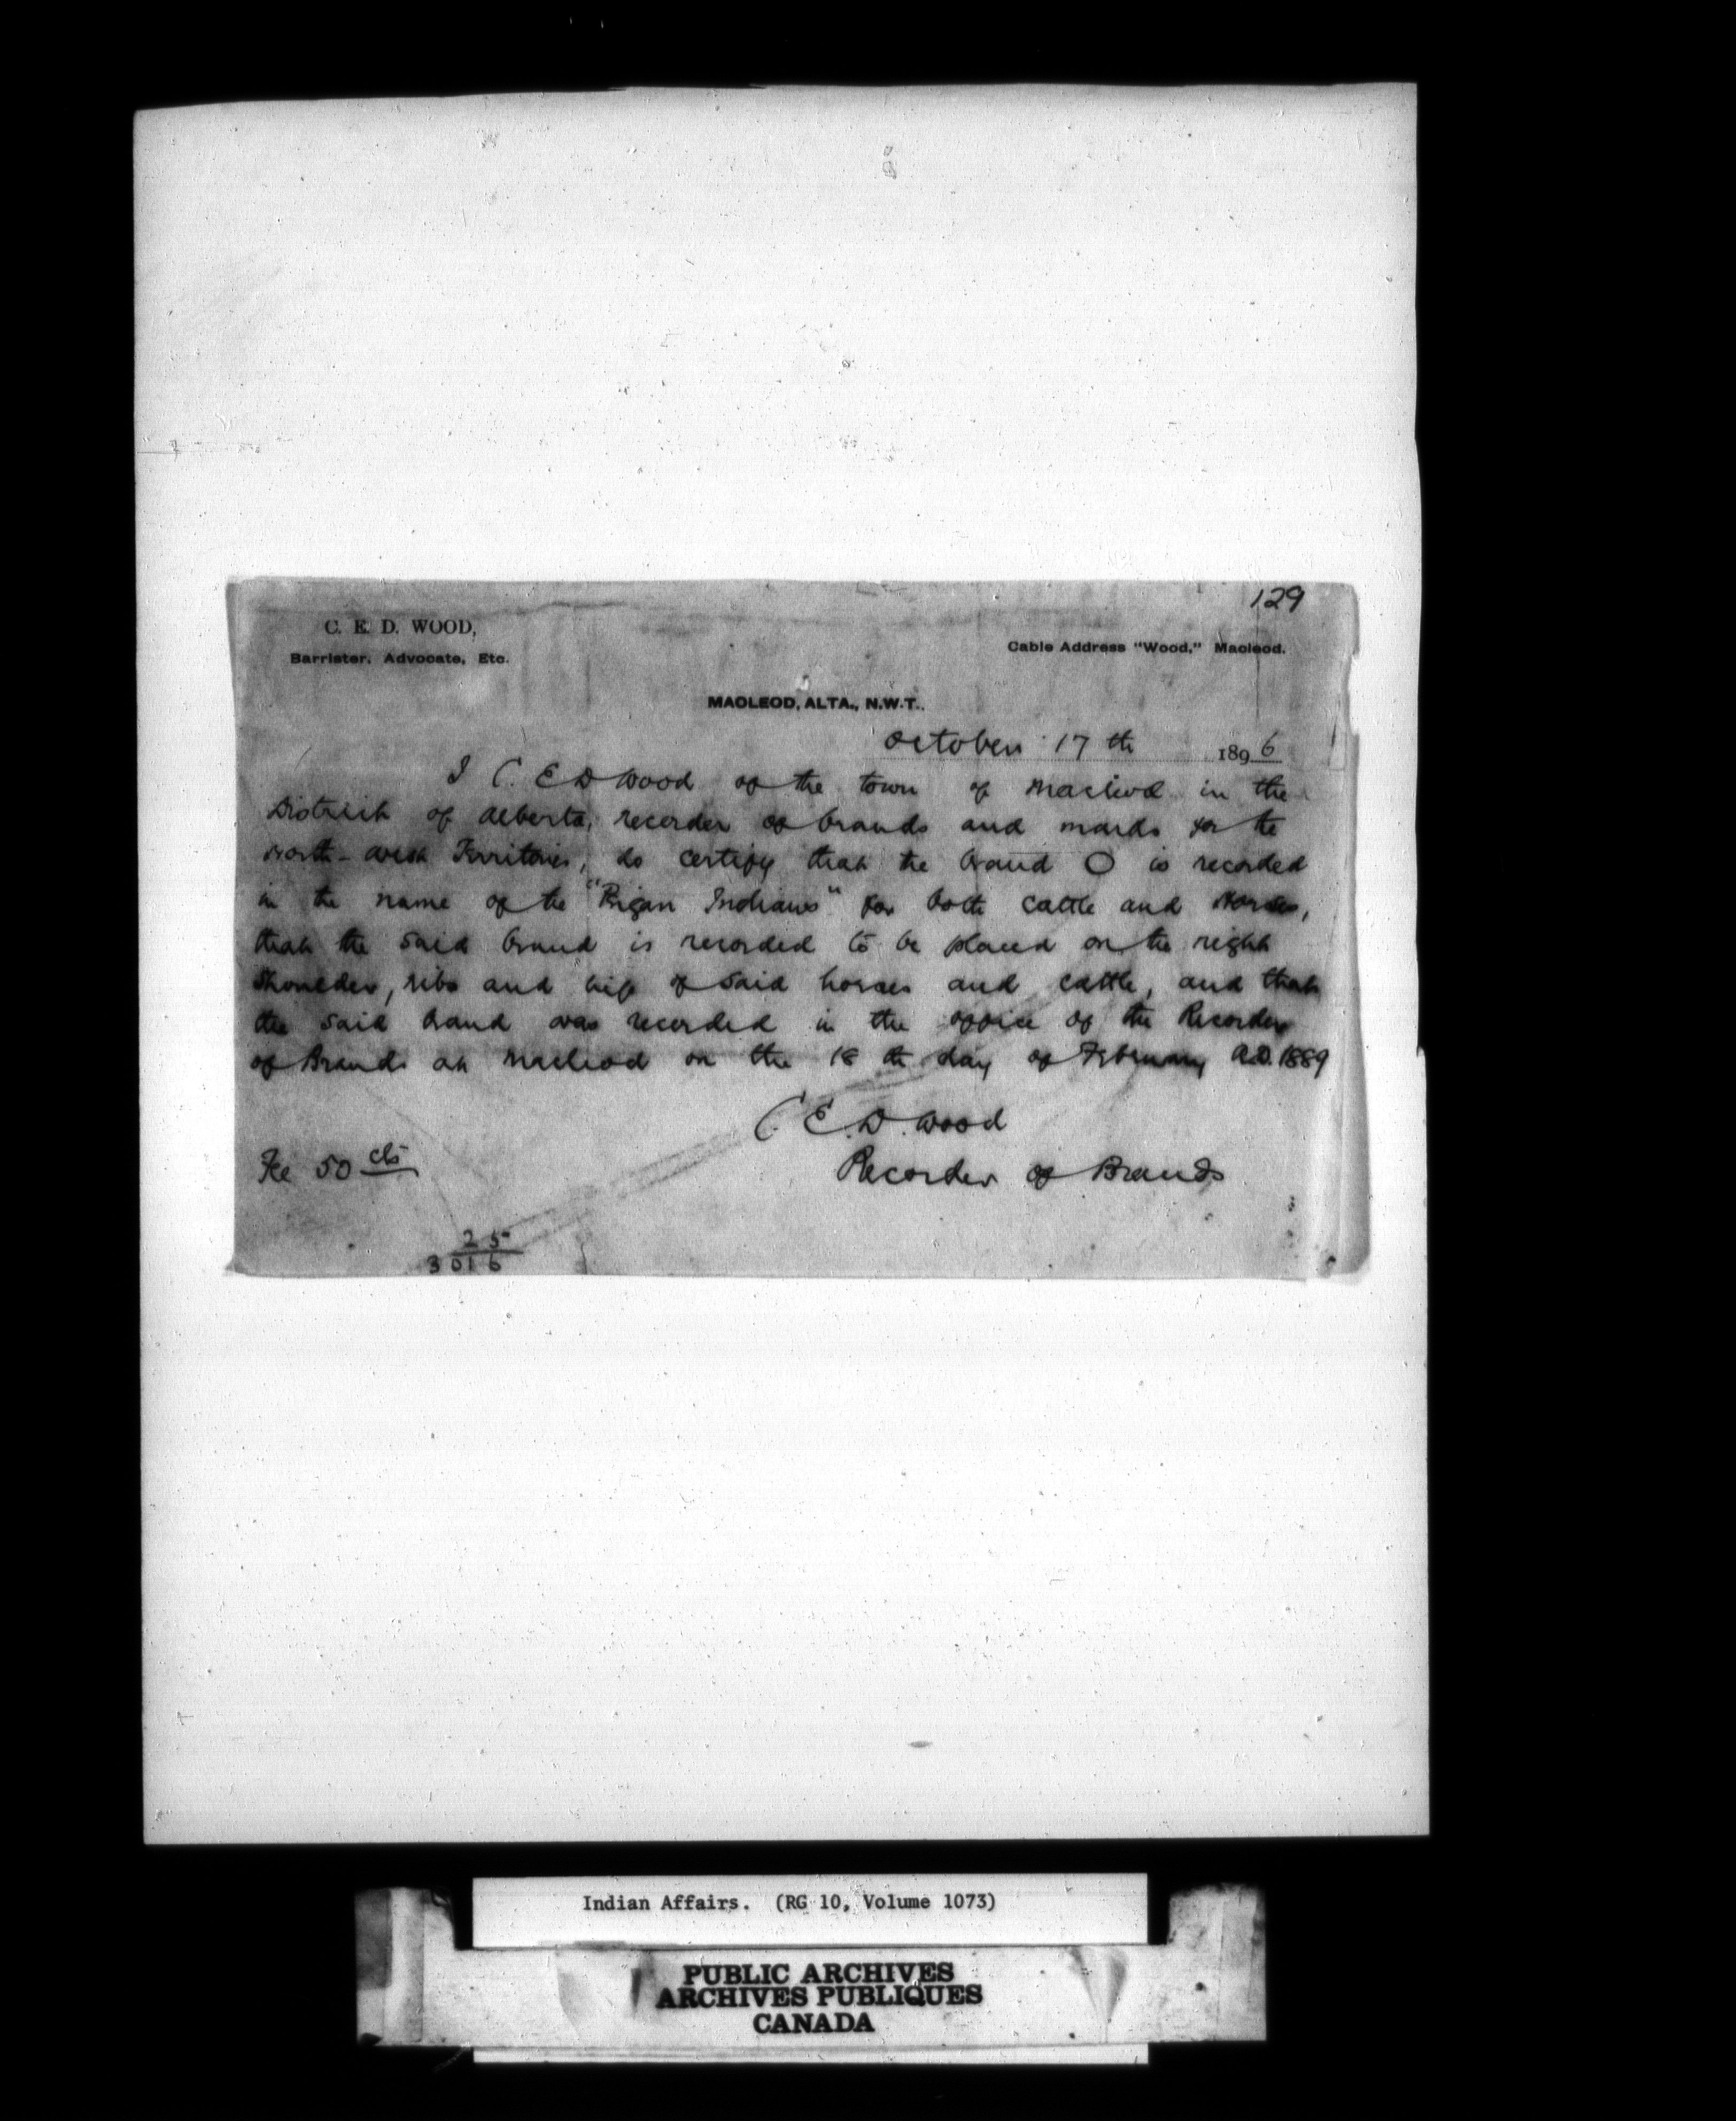 129
C. E. D. WOOD,
Barrister, Advocate, Etc.
Cable Address "Wood," Macleod.
MACLEOD, ALTA., N.W.T.
October 17 th 1896
I C. E D Wood of the town of Macleod in the
District of Alberta, recorder of brands and marks for the
North-West Territories, do certify that the brand O is recorded
in the name of the "Pigan Indians" for both cattle and Horses,
that the said brand is recorded to be placed on the right
shoulder, ribs and hip of said horses and cattle, and that
the said brand was recorded in the office of the Recorder
of Brands at Macleod on the 18 th day of February A.D. 1889
C. E. D. Wood
Fee 50 cts
Recorder of Brands
25
3016
Indian Affairs. (RG 10, Volume 1073)
PUBLIC ARCHIVES
ARCHIVES PUBLIQUES
CANADA